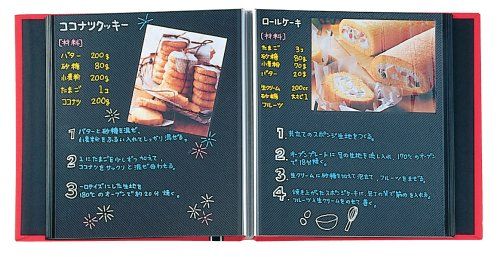 ココナツクッキー
[材料]
バター 200g
砂糖 80g
小麦粉 200g
たまご 1コ
ココナツ 200g
1 バターと砂糖を混ぜ、
小麦粉をふるい入れてしっかり混ぜる。
2 1にたまごを少しずつ加えて、
ココナツをサックリと混ぜ合わせる。
3 一口サイズにした生地を
180℃のオーブンで約20分焼く。
ロールケーキ
[材料]
たまご 3コ
砂糖 80g
小麦粉 70g
バター 20g
生クリーム 200cc
砂糖 大さじ1
フルーツ
1 共立てのスポンジ生地をつくる。
2 オーブンプレートに 1の生地を流し入れ、170℃のオーブン
で15分焼く。
3 生クリームに砂糖を加えて泡立て、フルーツをまぜる。
4 焼き上がったスポンジケーキに、
フルーツ入生クリームをのせて巻く。